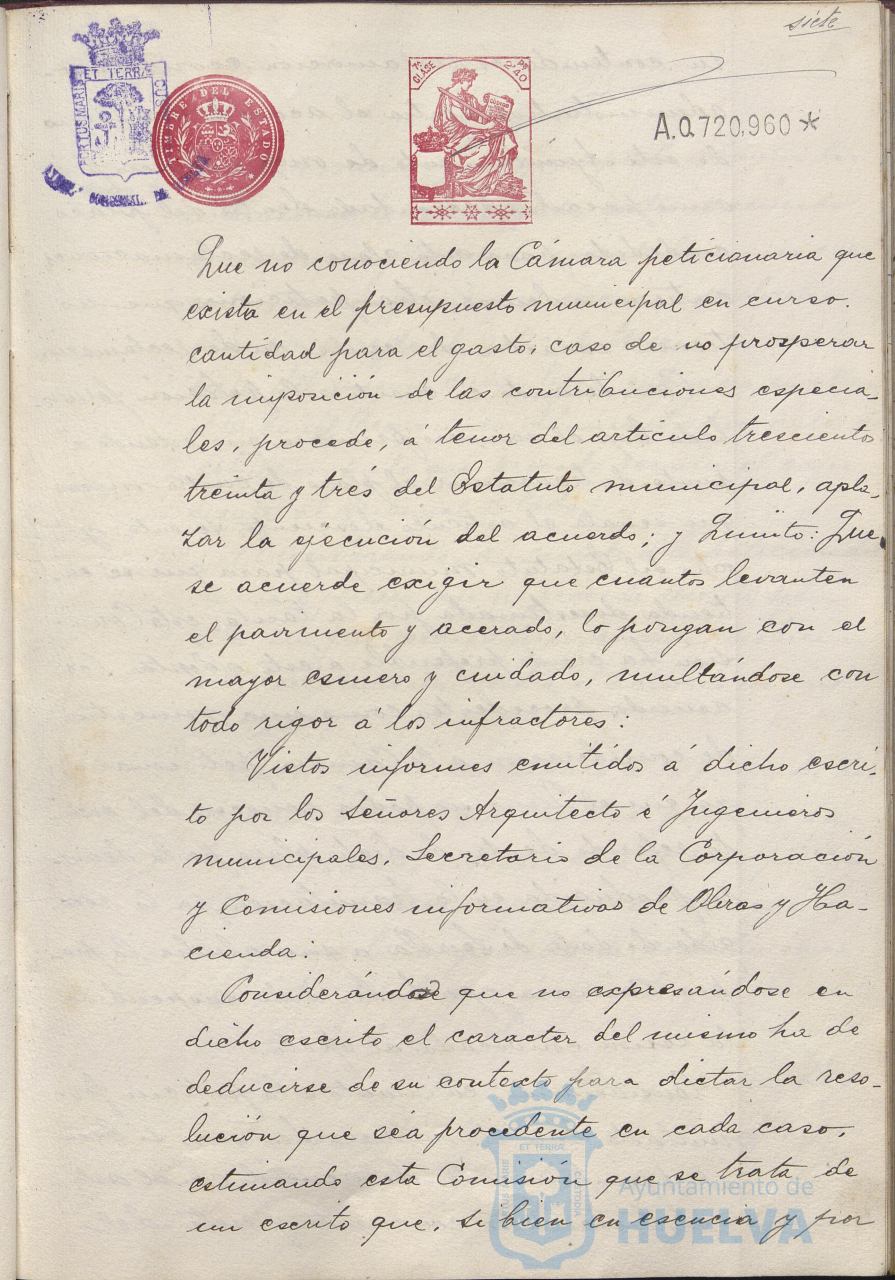 siete
ET TERRÆ
PORTUS MARIS
CUS
TIMBRE DEL ESTADO
7ª CLASE
Pª 2'40
A.0.720,960 *
Que no conociendo la Cámara peticionaria que
exista en el presupuesto municipal en curso.
cantidad para el gasto, caso de no prosperar
la imposición de las contribuciones especia-
les, procede, á tenor del artículo trescientos
treinta y trés del Estatuto municipal, apla-
zar la ejecución del acuerdo; y Quinto: Que
se acuerde exigir que cuantos levanten
el pavimento y acerado, lo pongan con el
mayor esmero y cuidado, multándose con
todo rigor á los infractores:
Vistos informes emitidos á dicho escri-
to por los Señores Arquitecto é Ingenieros
municipales, Secretario de la Corporación
y Comisiones informativas de Obras y Ha-
cienda:
Considerándose que no expresándose en
dicho escrito el caracter del mismo ha de
deducirse de su contexto para dictar la reso-
lución que séa procedente en cada caso,
estimando esta Comisión que se trata de
un escrito que, si bien en esencia y por
ET TERRÆ
Ayuntamiento de
HUELVA